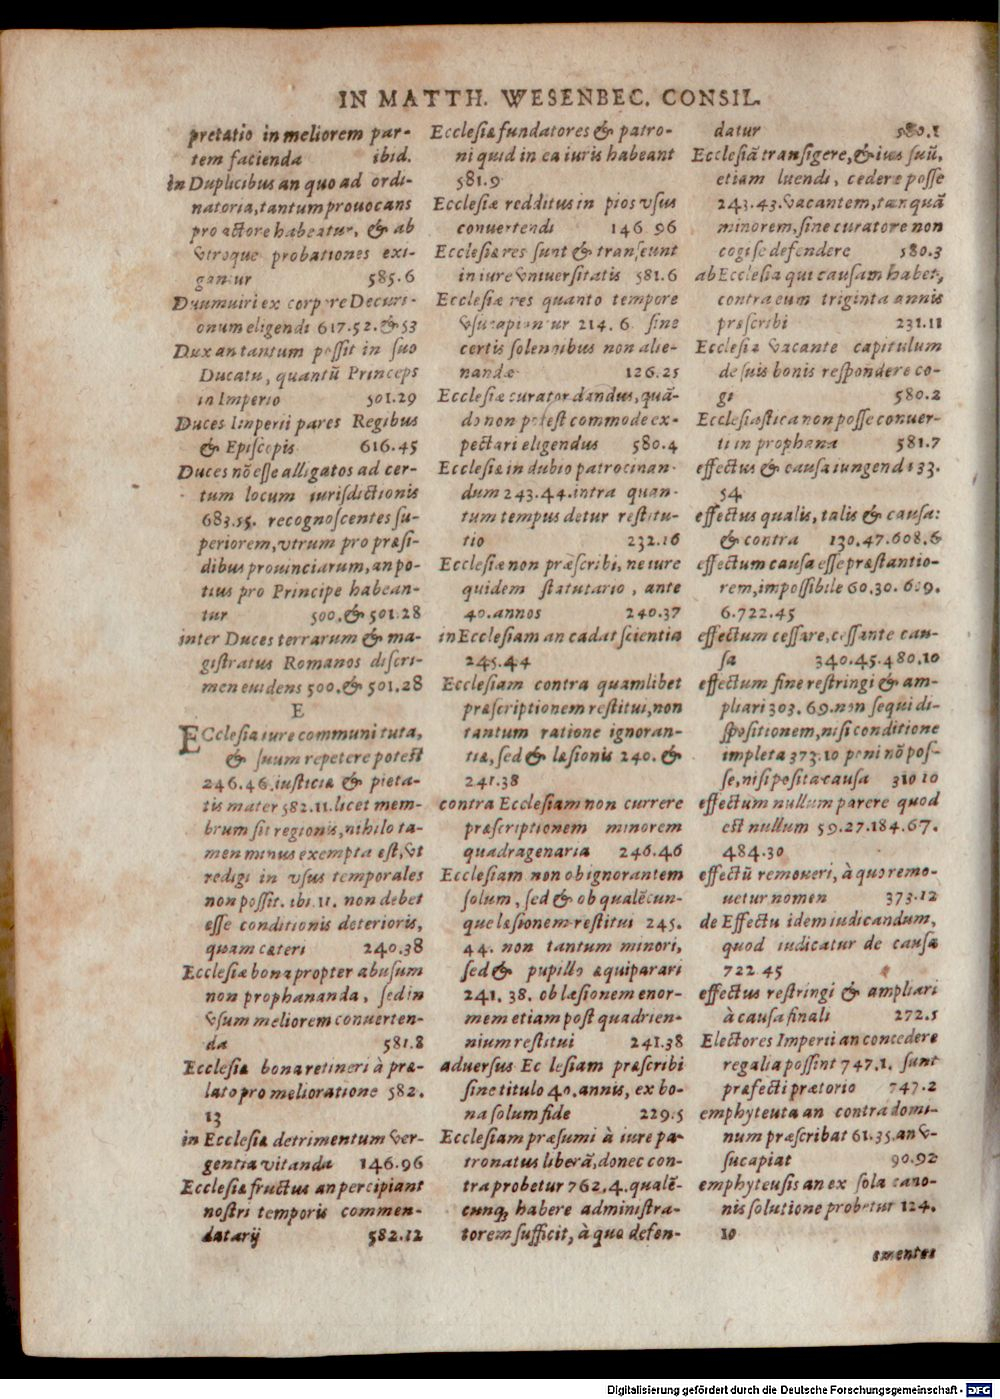 IN MATTH. WESENBEC. CONSIL.
pretatio in meliorem par-
tem facienda ibid.
In Duplicibus an quo ad ordi-
natoria, tantum prouocans
pro actore habeatur, & ab
vtroque probationes exi-
gantur 585.6
Duumuiri ex corpore Decuri-
onum eligendi 617.52. & 53
Dux an tantum poſſit in ſuo
Ducatu, quantũ Princeps
in Imperio 501.29
Duces Imperii pares Regibus
& Epiſcopis 616.45
Duces nõ eſſe alligatos ad cer-
tum locum iuriſdictionis
683.55. recognoſcentes ſu-
periorem, vtrum pro præſi-
dibus prouinciarum, an po-
tius pro Principe habean-
tur 500. & 501.28
inter Duces terrarum & ma-
giſtratus Romanos diſcri-
men euidens 500. & 501.28
E
ECcleſia iure communi tuta,
& ſuum repetere poteſt
246.46. iuſticiæ & pieta-
tis mater 582.11. licet mem-
brum ſit regionis, nihilo ta-
men minus exempta eſt, vt
redigi in vſus temporales
non poſſit. ibi. 11. non debet
eſſe conditionis deterioris,
quam cæteri 240.38
Ecclesiæ bona propter abuſum
non prophananda, ſed in
vſum meliorem conuerten-
da 581.8
Eccleſiæ bona retineri à præ-
lato pro melioratione 582.
13
in Eccleſiæ detrimentum ver-
gentia vitanda 146.96
Eccleſiæ fructus an percipiant
noſtri temporis commen-
datarij 582.12
Eccleſiæ fundatores & patro-
ni quid in ea iuris habeant
581.9
Eccleſiæ redditus in pios vſus
conuertendi 146 96
Eccleſiæ res ſunt & tranſeunt
in iure vniuerſitatis 581.6
Eccleſiæ res quanto tempore
vſucapiantur 214. 6. ſine
certis ſolennibus non alie-
nandæ 126.25
Eccleſiæ curator dandus, quã-
do non poteſt commode ex-
pectari eligendus 580.4
Eccleſiæ in dubio patrocinan-
dum 243.44. intra quan-
tum tempus detur reſtitu-
tio 232.16
Eccleſiæ non præſcribi, ne iure
quidem ſtatutario, ante
40. annos 240.37
in Eccleſiam an cadat ſcientia
245.44
Eccleſiam contra quamlibet
præſcriptionem reſtitui, non
tantum ratione ignoran-
tiæ, ſed & læſionis 240. &
241.38
contra Eccleſiam non currere
præſcriptionem minorem
quadragenaria 246.46
Eccleſiam non ob ignorantem
ſolum, ſed & ob qualẽcun-
que læſionem reſtitui 245.
44. non tantum minori,
ſed & pupillo æquiparari
241. 38. ob læſionem enor-
mem etiam poſt quadrien-
nium reſtitui 241.38
aduersus Ec leſiam præſcribi
ſine titulo 40. annis, ex bo-
na ſolum fide 229.5
Eccleſiam præſumi à iure pa-
tronatus liberã, donec con-
tra probetur 762.4. qualẽ-
cunq; habere adminiſtra-
torem ſufficit, à quo defen-
datur 580.1
Eccleſiã tranſigere, & ius ſuũ,
etiam luendi, cedere poſſe
243.43. vacantem, tanquã
minorem, ſine curatore non
cogi ſe defendere 580.3
ab Eccleſia qui cauſam habet,
contra eum triginta annis
præſcribi 231.11
Eccleſia vacante capitulum
de ſuis bonis reſpondere co-
gi 580.2
Eccleſiaſtica non poſſe conuer-
ti in prophana 581.7
effectus & cauſa iungendi 33.
54
effectus qualis, talis & cauſa:
& contra 130.47.608.6
effectum cauſa eſſe præſtantio-
rem, impoſſibile 60.30. 609.
6.722.45
effectum ceſſare, ceſſante cau-
ſa 340.45.480.10
effectum fine reſtringi & am-
pliari 303. 69. non ſequi di-
ſpoſitionem, niſi conditione
impleta 373.10 poni nõ poſ-
ſe, niſi poſita cauſa 310 10
effectum nullum parere quod
eſt nullum 59.27.184.67.
484.30
effectũ remoueri, à quo remo-
uetur nomen 373.12
de Effectu idem iudicandum,
quod iudicatur de cauſa
722.45
effectus reſtringi & ampliari
à cauſa finali 272.5
Electores Imperii an concedere
regalia poſſint 747.1. ſunt
præfecti prætorio 747.2
emphyteuta an contra domi-
num præſcribat 61.35. an v-
ſucapiat 90.92
emphyteuſis an ex ſola cano-
nis ſolutione probetur 124.
10
ementes
Digitalisierung gefördert durch die Deutsche Forschungsgemeinschaft - DFG